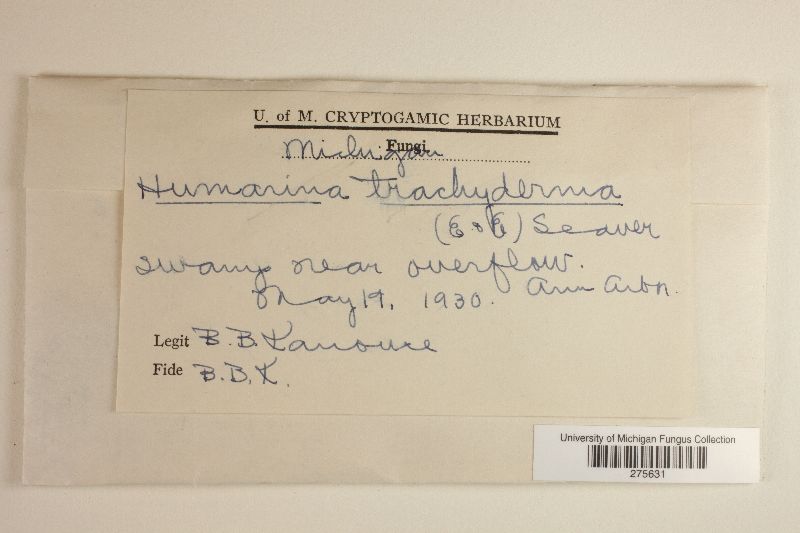 U. of M. CRYPTOGAMIC HERBARIUM
Fungi
Michigan
Humarina trachyderma
(E & E) Seaver
swamp near overflow.
May 19, 1930. Ann Arbor.
Legit B. B. Kanouse
Fide B. B. K.
University of Michigan Fungus Collection
275631